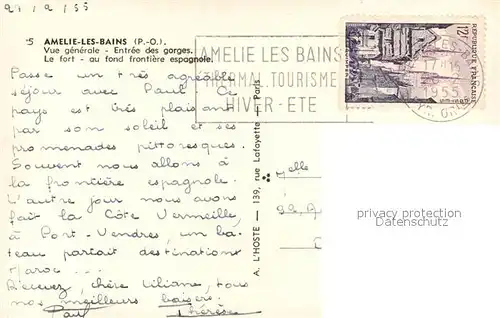 21/2/55
5 AMELIE-LES-BAINS (P.-O.).
Vue générale - Entrée des gorges.
Le fort - au fond frontière espagnole.
Passe un très agréable
séjour avec Paul. Ce
pays est très plaisant
par son soleil et ses
promenades pittoresques.
Souvent nous allons à
la frontière espagnole.
L'autre jour nous avons
fait la Côte Vermeille,
à Port-Vendres, un ba-
teau partait destination
Maroc...
Recevez, chère Liliane, tous
nos meilleurs baisers.
Paul Thérèse
A. L'HOSTE — 139, rue Lafayette — Paris
AMELIE LES BAINS
THERMAL.TOURISME
HIVER-ETE
12F
REPUBLIQUE FRANCAISE
17-H 15
1955
PYR. OR
Melle
privacy protection